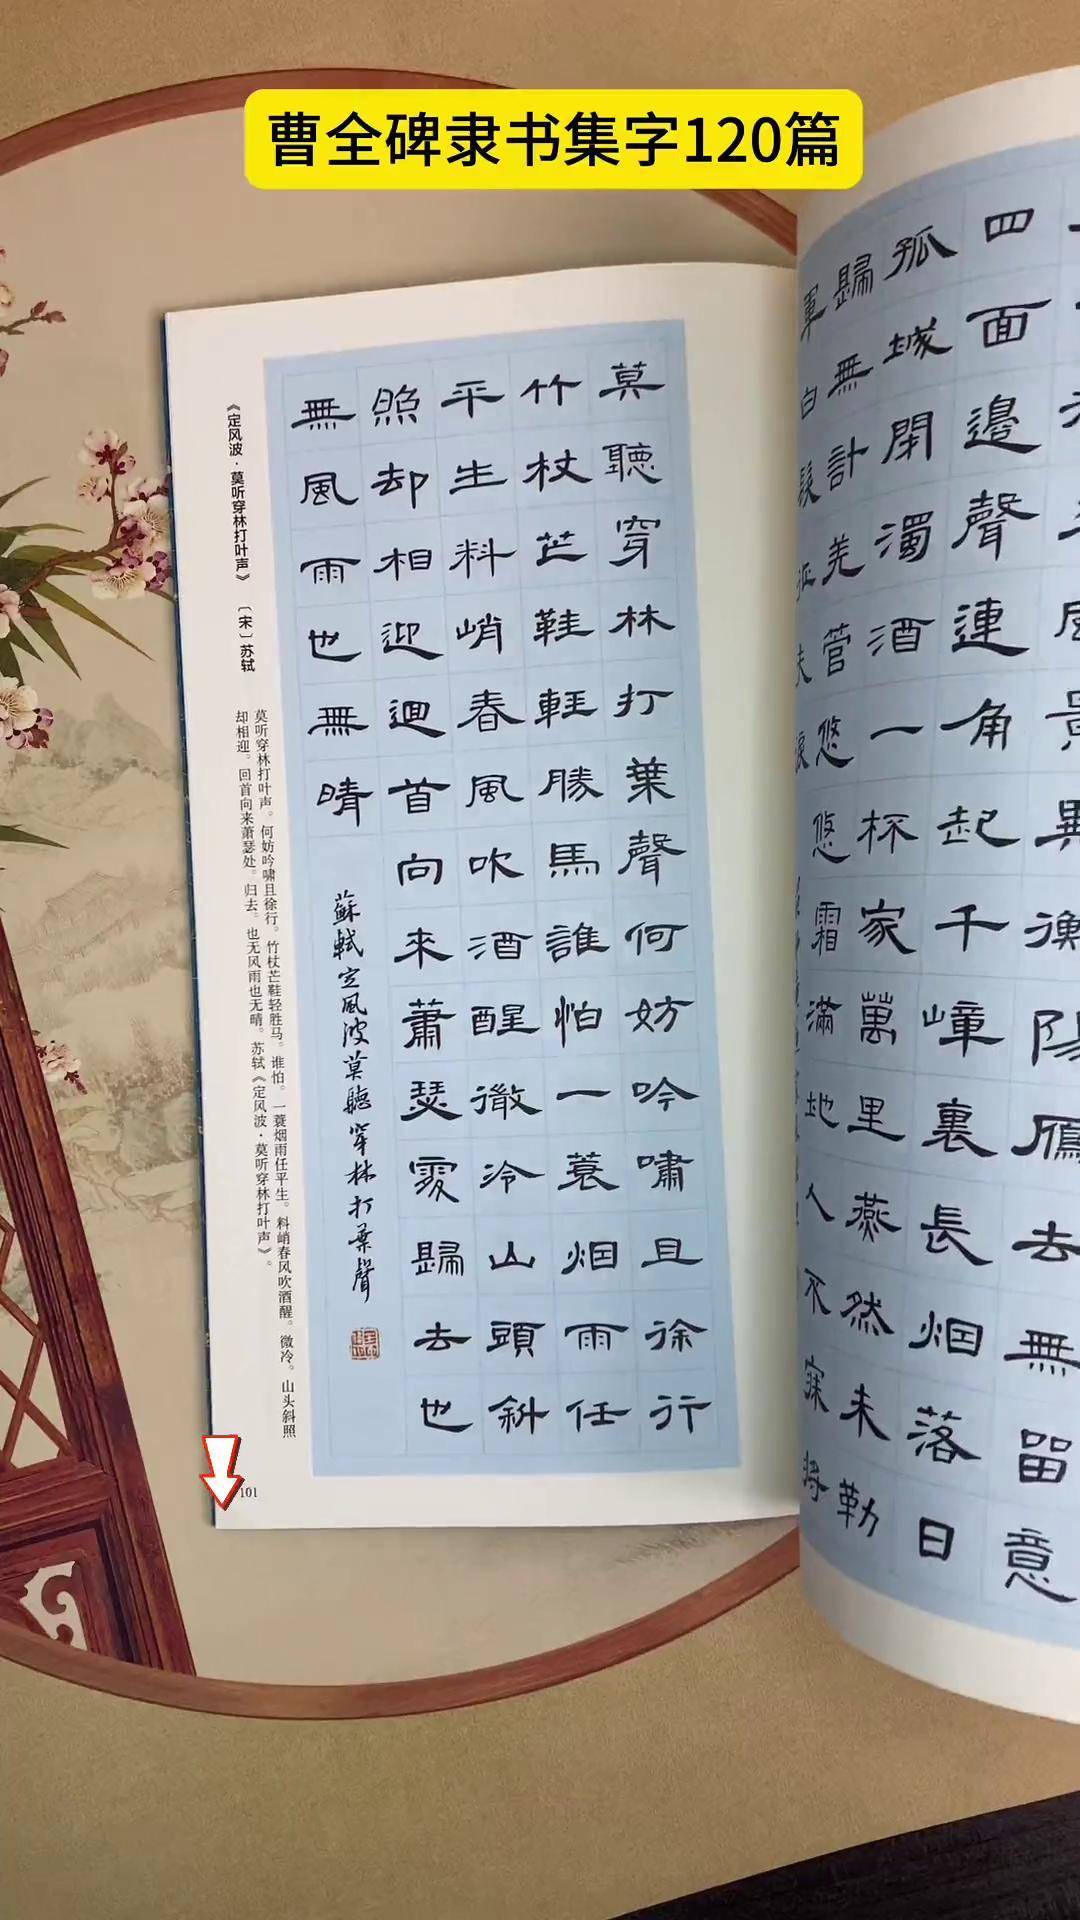 曹全碑隶书集字120篇
莫聽穿林打葉聲何妨吟嘯且徐行
竹杖芒鞋輕勝馬誰怕一蓑烟雨任
平生料峭春風吹酒醒微冷山頭斜
照却相迎迴首向來蕭瑟處歸去也
無風雨也無晴
蘇軾定風波莫聽穿林打葉聲
《定风波·莫听穿林打叶声》 〔宋〕苏轼
莫听穿林打叶声。何妨吟啸且徐行。竹杖芒鞋轻胜马。谁怕。一蓑烟雨任平生。料峭春风吹酒醒。微冷。山头斜照
却相迎。回首向来萧瑟处。归去。也无风雨也无晴。苏轼《定风波·莫听穿林打叶声》。
101
衡陽雁去無留意
四面邊聲連角起千嶂裏長烟落日
孤城閉濁酒一杯家萬里燕然未勒
歸無計羌管悠悠霜滿地人不寐將